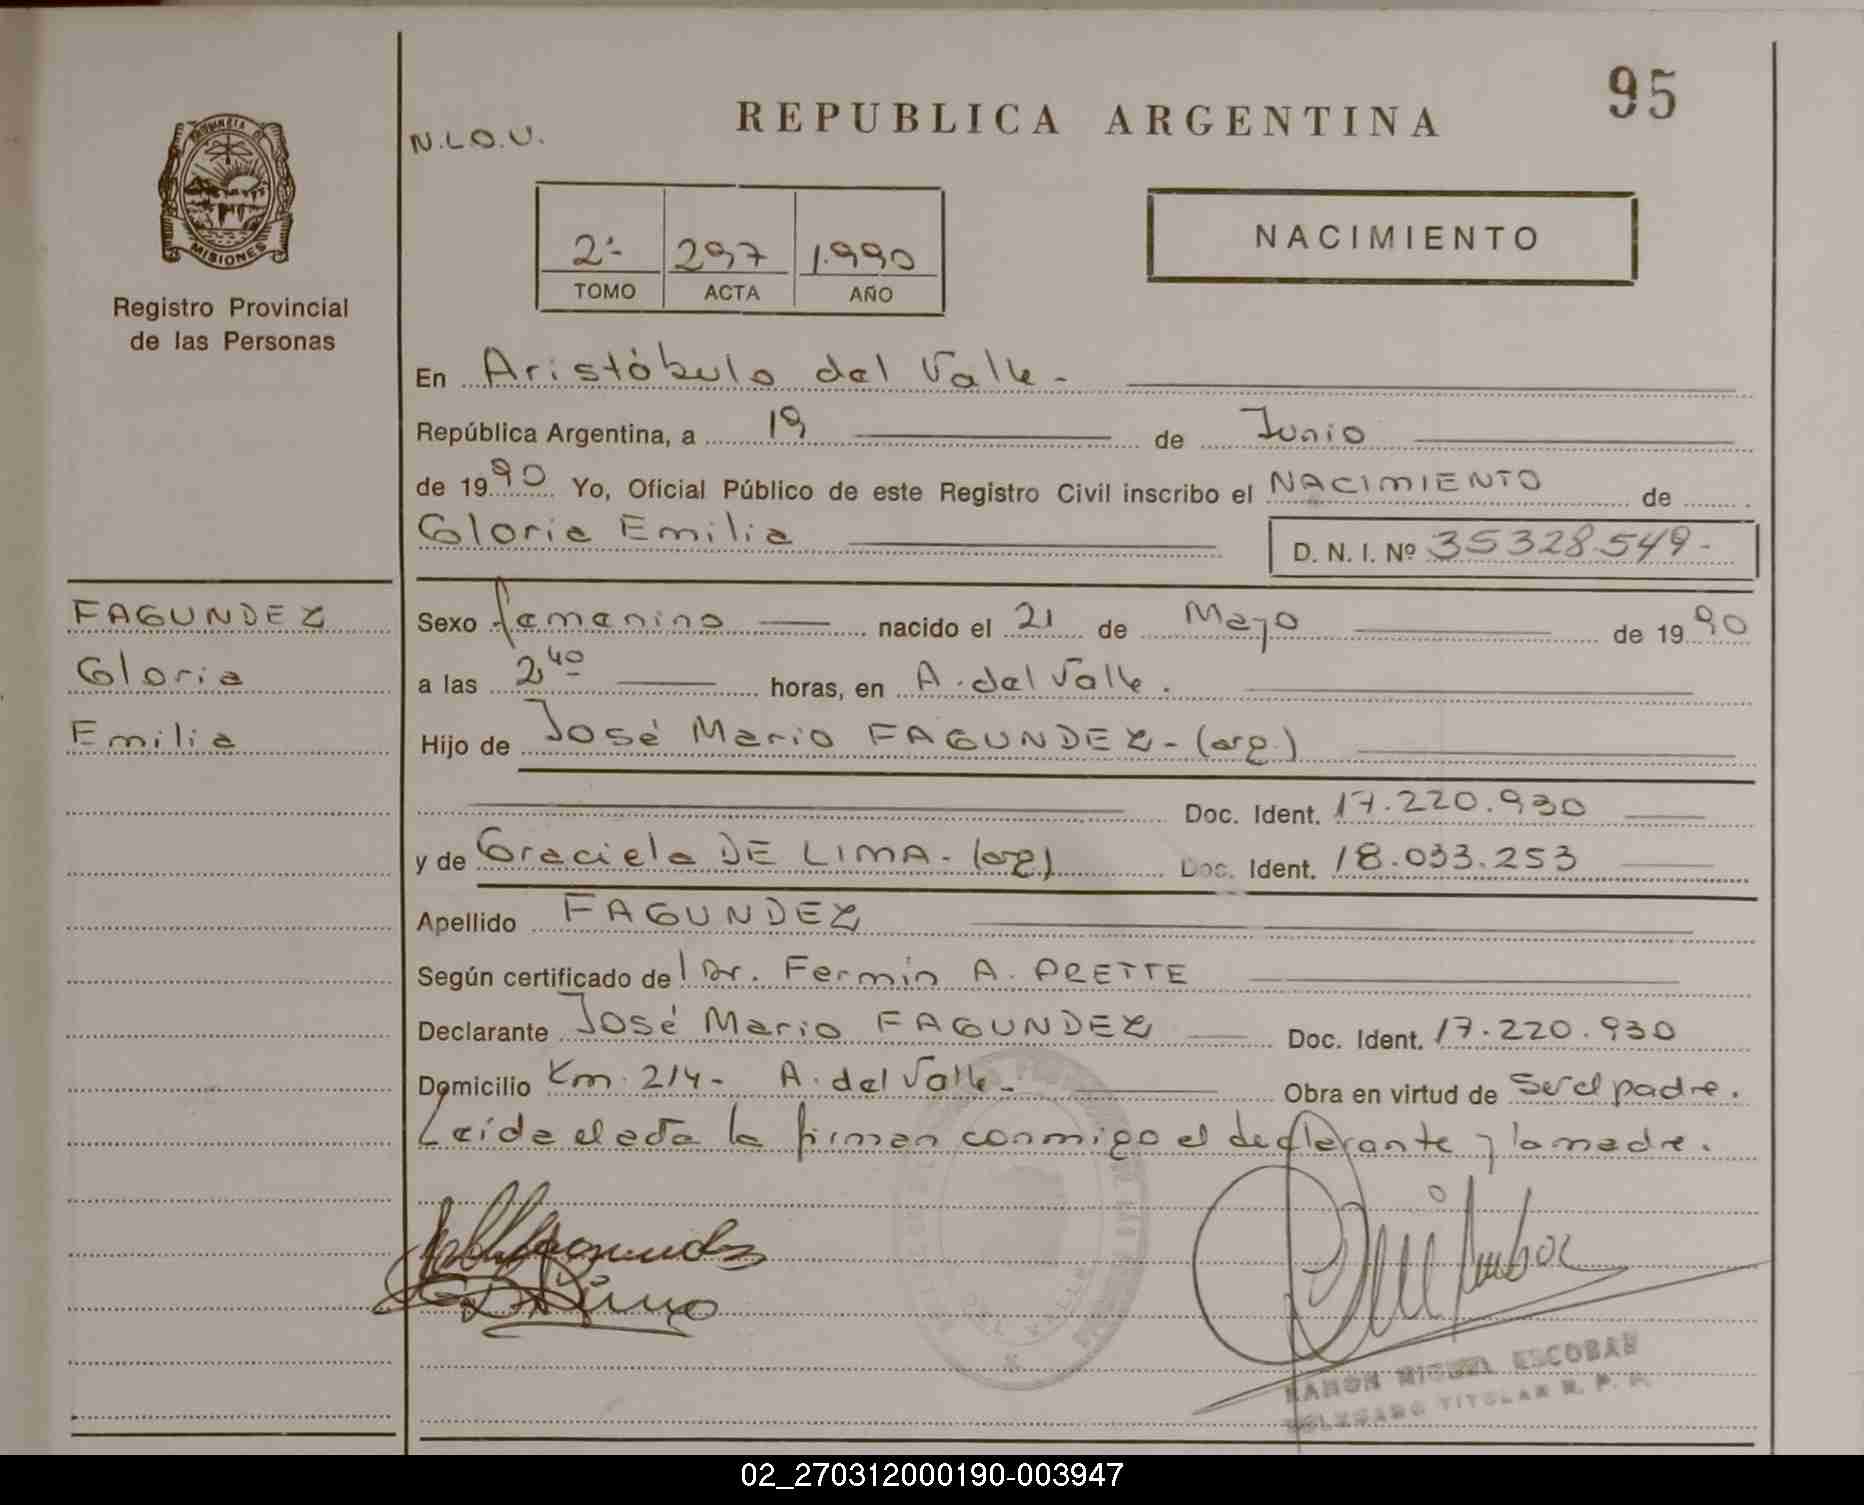 95
REPUBLICA ARGENTINA
N.L.O.U.
PROVINCIA DE
MISIONES
Registro Provincial
de las Personas
2º- 297 1.990
TOMO ACTA AÑO
NACIMIENTO
En Aristóbulo del Valle-
República Argentina, a 19 de Junio
de 1990 Yo, Oficial Público de este Registro Civil inscribo el NACIMIENTO de
Gloria Emilia D. N. I. Nº 35328.549-
FAGUNDEZ
Gloria
Emilia
Sexo femenino nacido el 21 de Mayo de 1990
a las 2 40 horas, en A. del Valle.
Hijo de José Mario FAGUNDEZ-(arg.)
Doc. Ident. 17.220.930
y de Graciela DE LIMA-(arg) Doc. Ident. 18.033.253
Apellido FAGUNDEZ
Según certificado de Dr. Fermín A. PRETTE
Declarante José Mario FAGUNDEZ Doc. Ident. 17.220.930
Domicilio Km. 214- A. del Valle- Obra en virtud de ser el padre.
Leída el acta la firman conmigo el declarante y la madre.
RAMON MIGUEL ESCOBAR
DELEGADO TITULAR R. P. P.
02_270312000190-003947